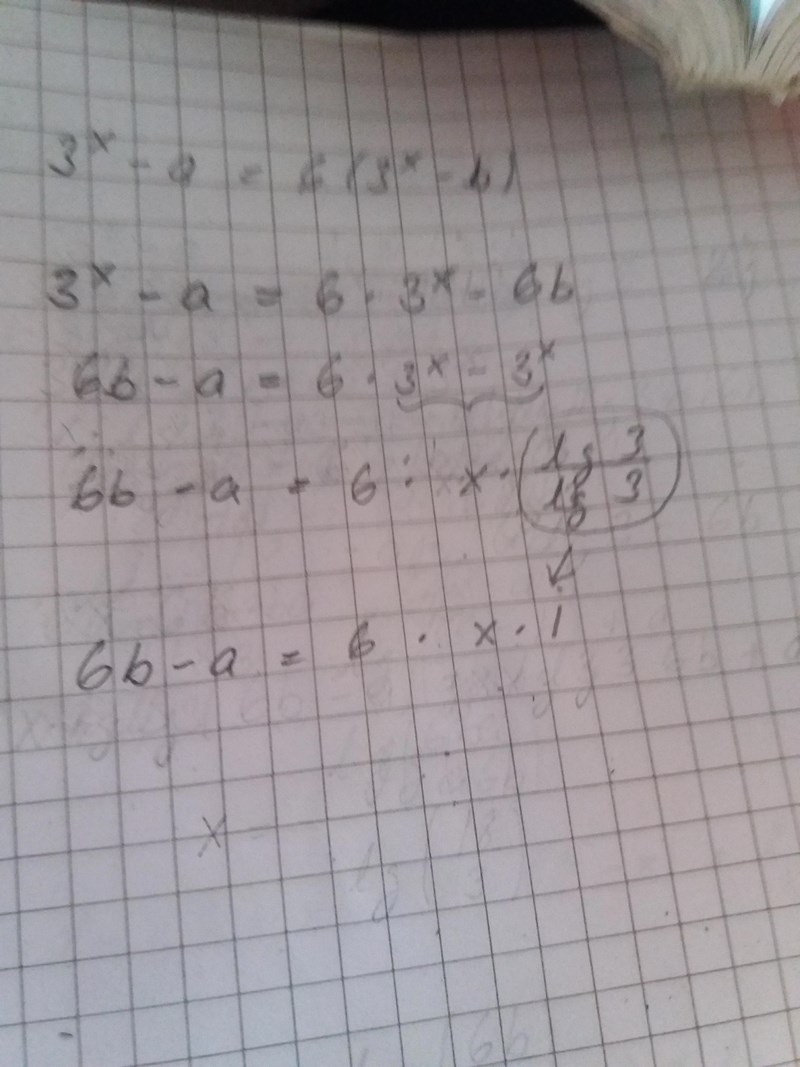 3^x - a = 6(3^x - b)
3^x - a = 6 · 3^x - 6b
6b - a = 6 · 3^x - 3^x
6b - a = 6 · x · (lg 3 / lg 3)
↓
6b - a = 6 · x · 1
x